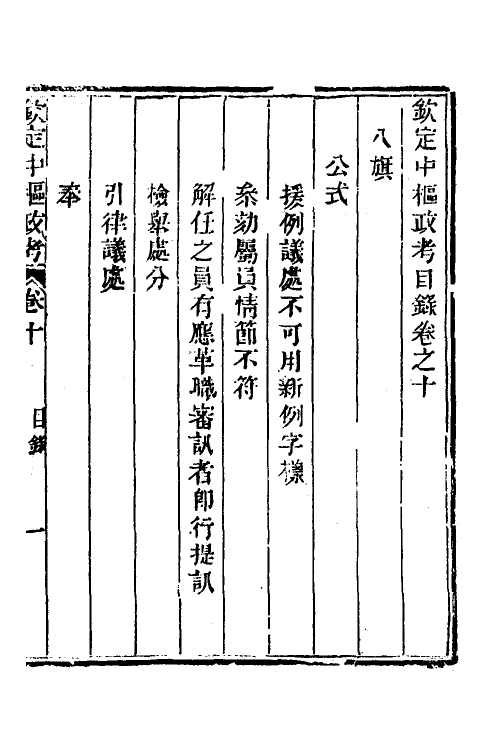 欽定中樞政考目錄卷之十
八旗
公式
援例議處不可用新例字樣
叅劾屬員情節不符
解任之員有應革職審訊者卽行提訊
檢舉處分
引律議處
奉
欽定中樞政考 卷十 目錄 一